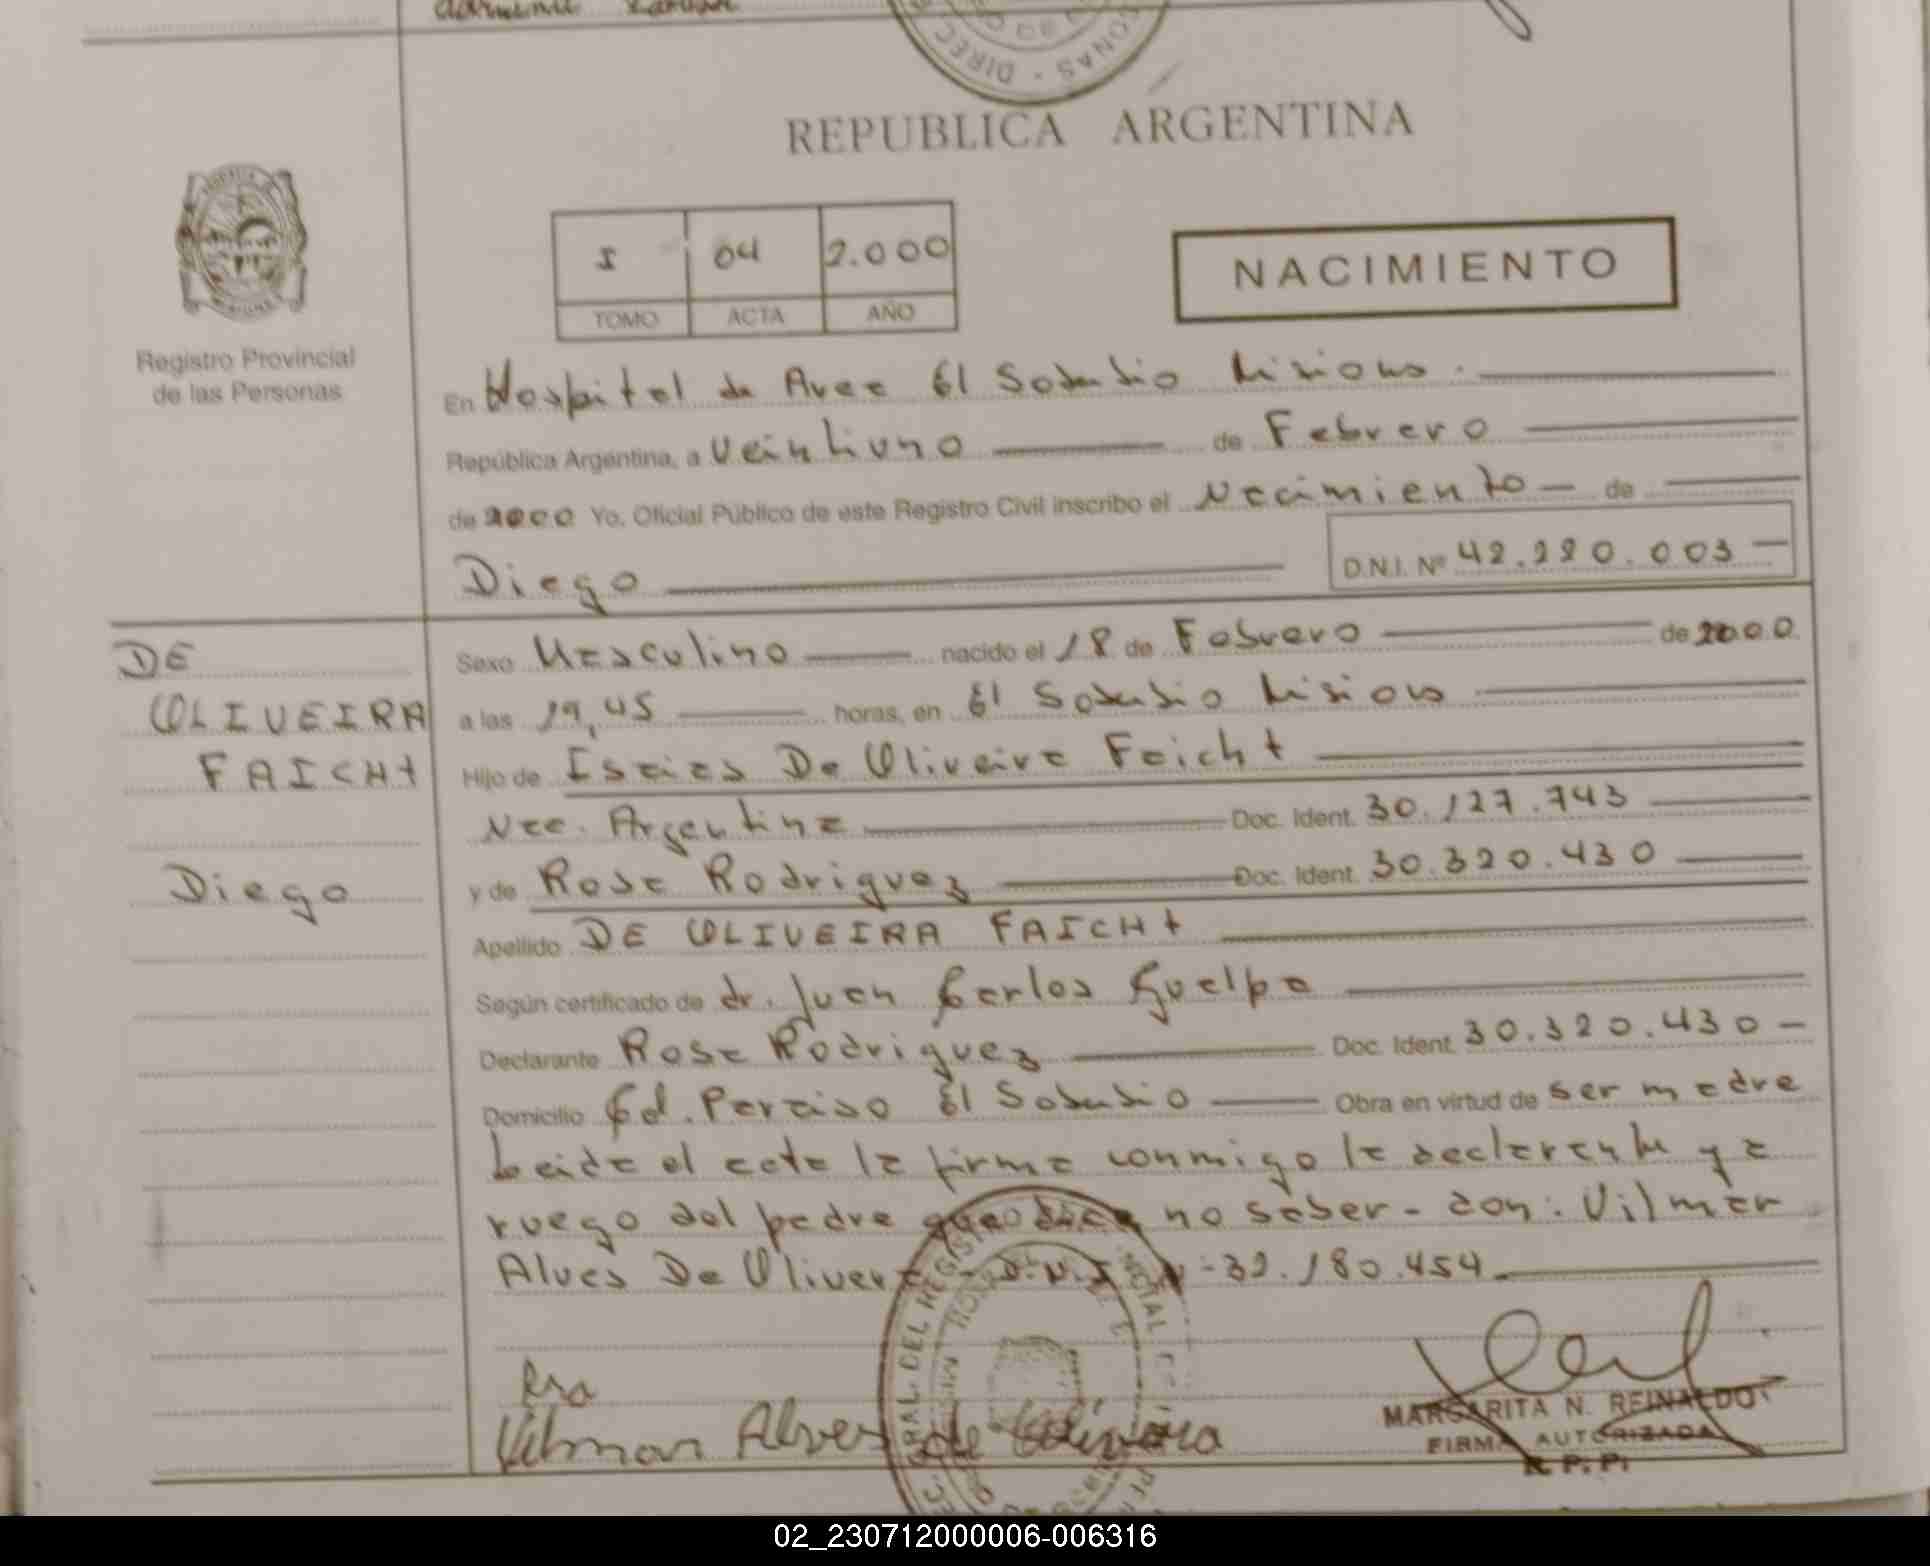 REPUBLICA ARGENTINA
I 04 2.000
TOMO ACTA AÑO
NACIMIENTO
Registro Provincial
de las Personas
En Hospital de Area El Soberbio Misiones.
República Argentina, a Veintiuno de Febrero
de 2000 Yo, Oficial Público de este Registro Civil inscribo el Nacimiento de
Diego D.N.I. Nº 42.220.003
DE
OLIVEIRA
FAICHt
Diego
Sexo Masculino nacido el 18 de Febrero de 2000
a las 19,45 horas, en El Soberbio Misiones
Hijo de Isaias De Oliveira Faicht
Nac. Argentina Doc. Ident. 30.127.743
y de Rosa Rodriguez Doc. Ident. 30.320.430
Apellido DE OLIVEIRA FAICHt
Según certificado de dr. Juan Carlos Guelpa
Declarante Rosa Rodriguez Doc. Ident. 30.320.430
Domicilio Cd. Paraiso El Soberbio Obra en virtud de ser madre
Leida el acta la firma conmigo la declarante y a
ruego del padre que dice no saber - don: Vilmar
Alves De Olivera D.N.I. Nº 32.180.454
Rosa
Vilmar Alves de Oliveira
MARGARITA N. REINALDO
FIRMA AUTORIZADA
R. P. P.
02_230712000006-006316